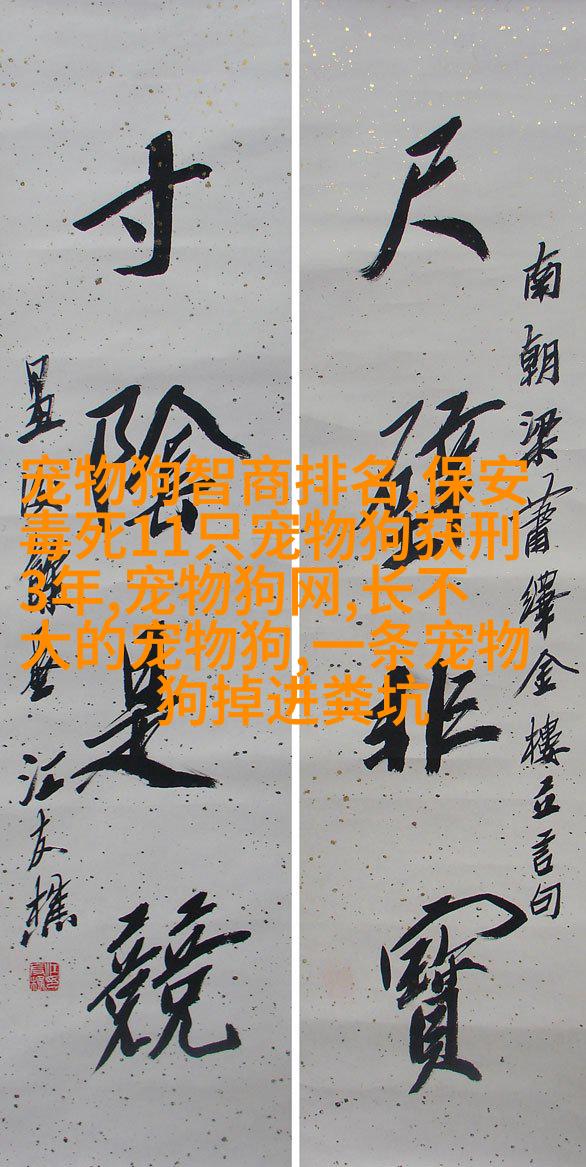 宠物狗智商排名,保安
毒死11只宠物狗获刑
3年,宠物狗网,长不
大的宠物狗,一条宠物
狗掉进粪坑
南朝梁蕭繹金樓立言句
尺璧非寶
寸陰是競
汪友樵